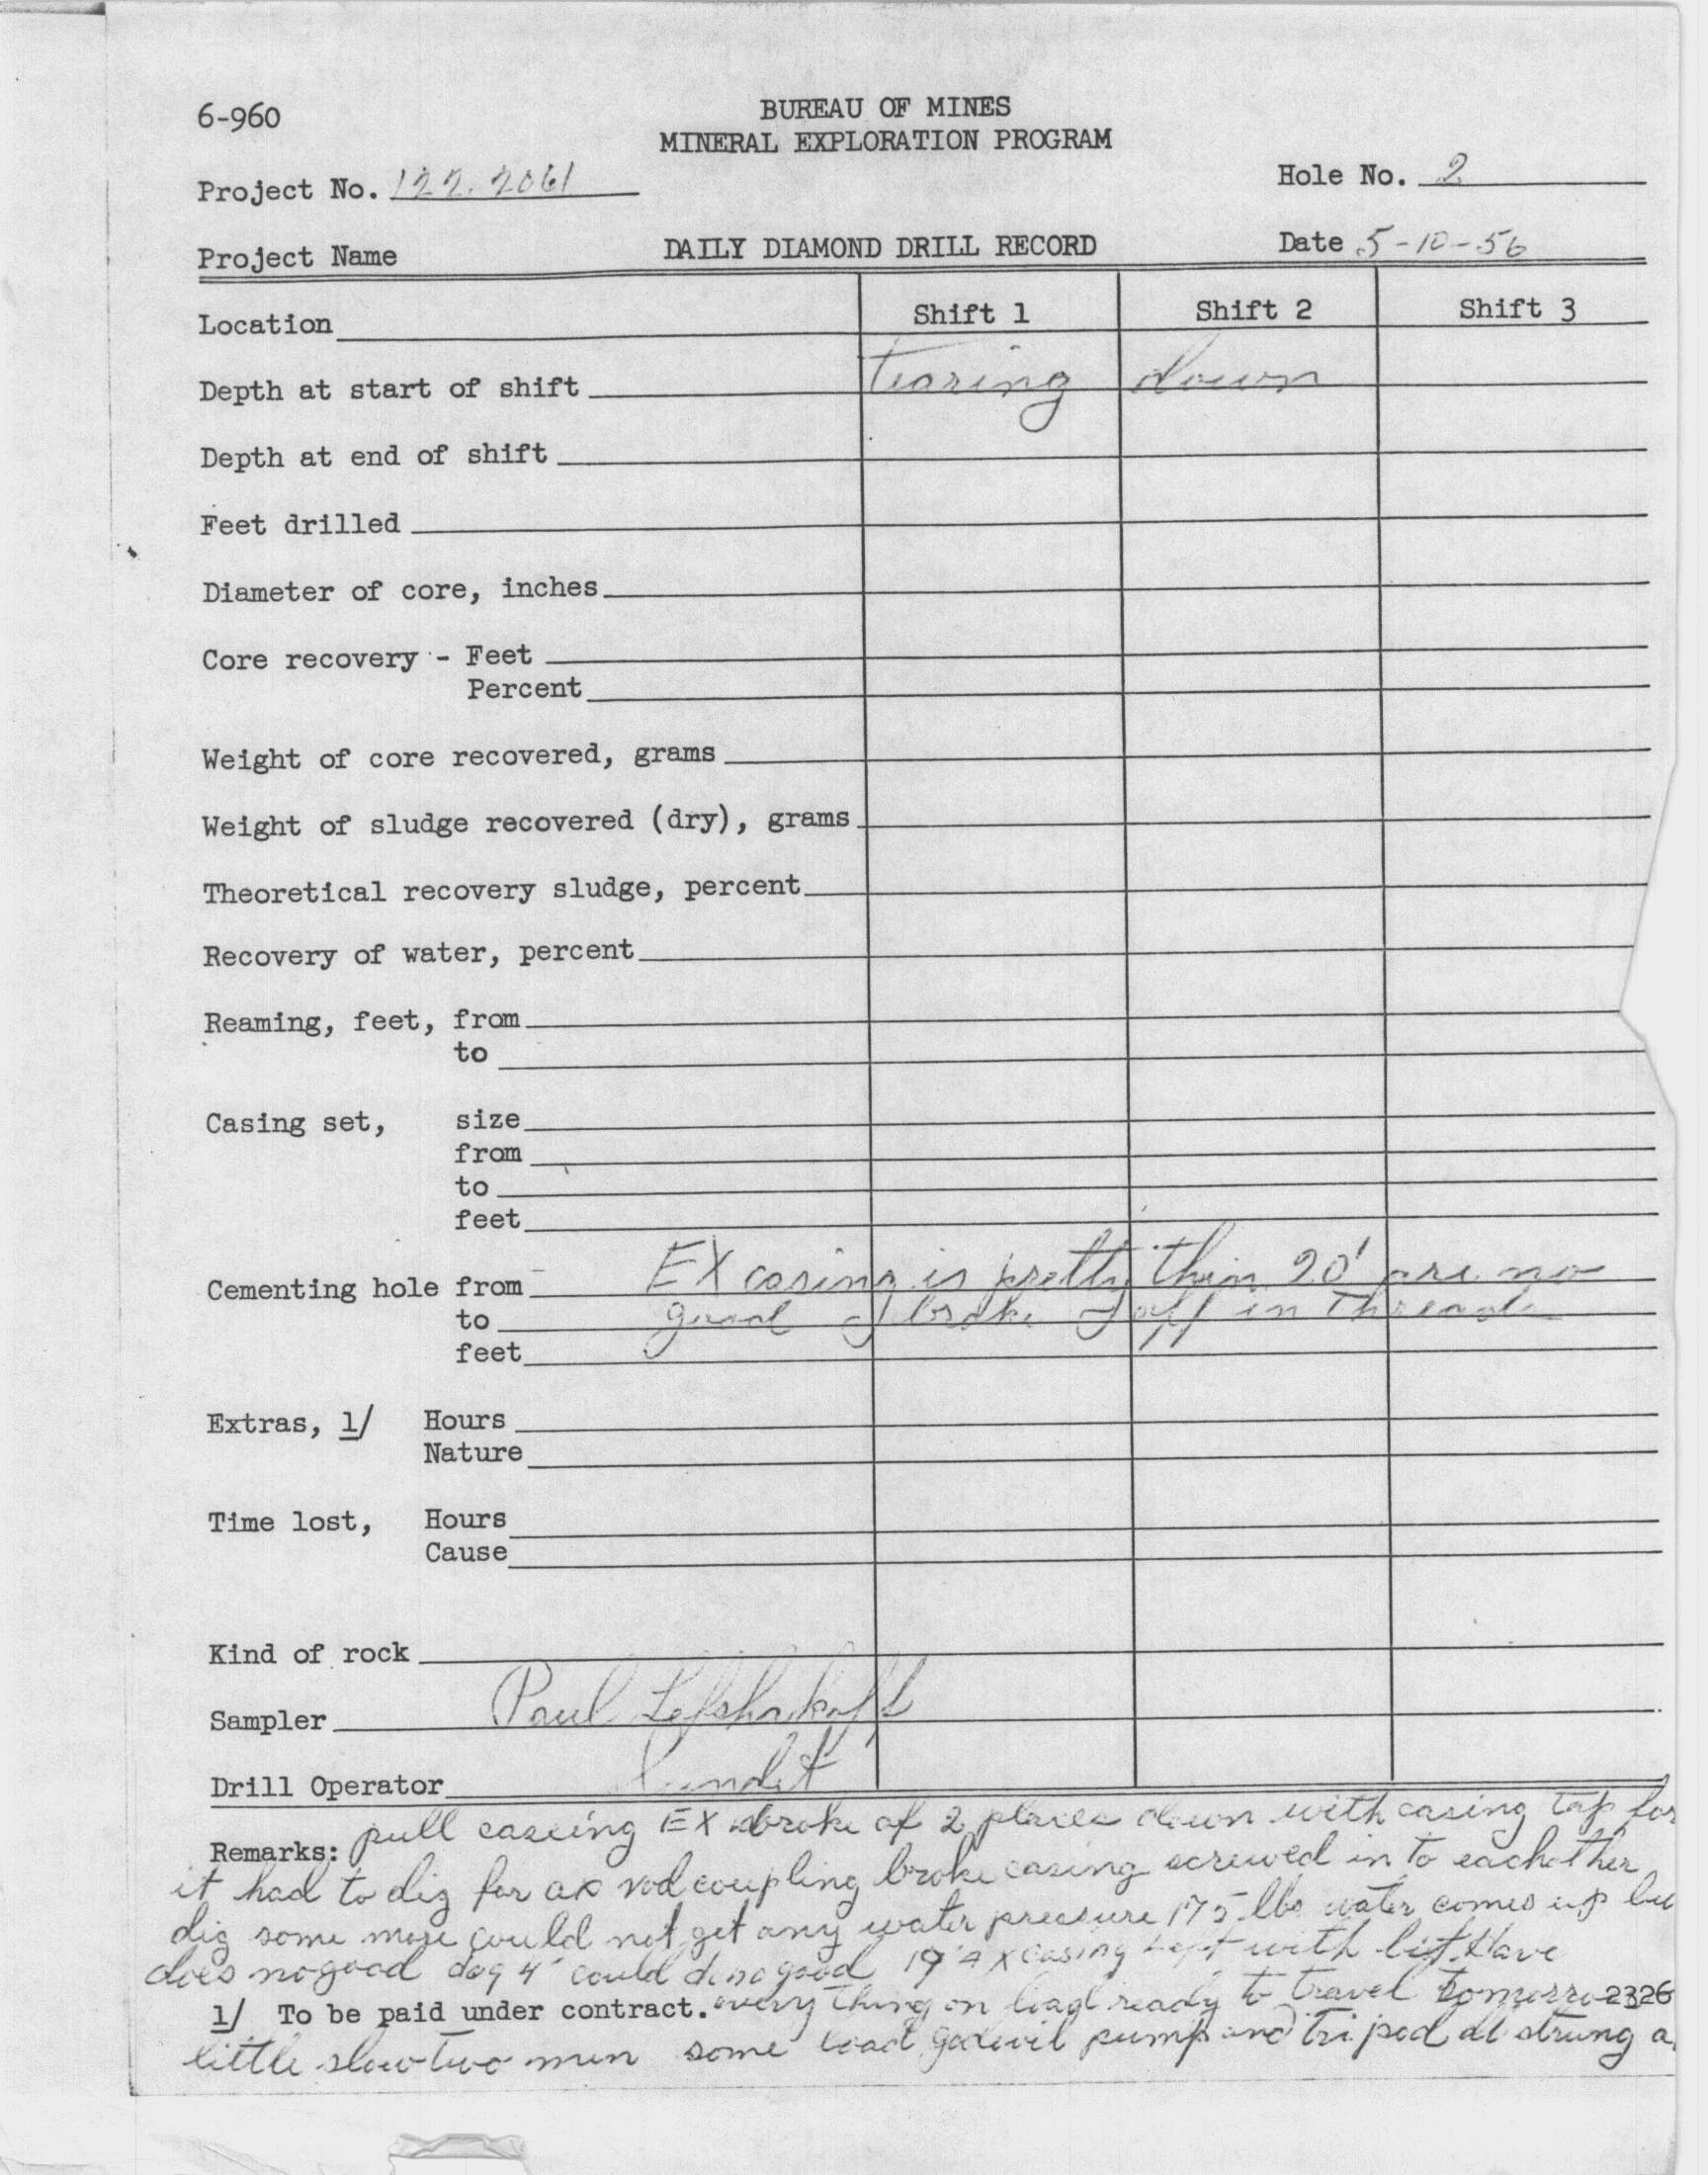 6-960
BUREAU OF MINES
MINERAL EXPLORATION PROGRAM
Project No. 122.2061
Hole No. 2
Project Name
DAILY DIAMOND DRILL RECORD
Date 5-10-56
Location
Shift 1 Shift 2 Shift 3
Depth at start of shift tearing down
Depth at end of shift
Feet drilled
Diameter of core, inches
Core recovery - Feet
Percent
Weight of core recovered, grams
Weight of sludge recovered (dry), grams
Theoretical recovery sludge, percent
Recovery of water, percent
Reaming, feet, from
to
Casing set, size
from
to
feet
Cementing hole from EX casing is pretty thin 20' are no
to good broke off in threads
feet
Extras, 1/ Hours
Nature
Time lost, Hours
Cause
Kind of rock
Sampler Paul
Drill Operator
Remarks: pull caseing EX broke of 2 places down with casing tap for
it had to dig for rod coupling broke casing screwed in to eachother
dig some more could not get any water pressure 175 lbs water comes up
does no good dog 4' could do no good 19' casing left with bit Have
1/ To be paid under contract. every thing on load ready to travel 2326
little slow two men some load godevil pump and tripod strung a